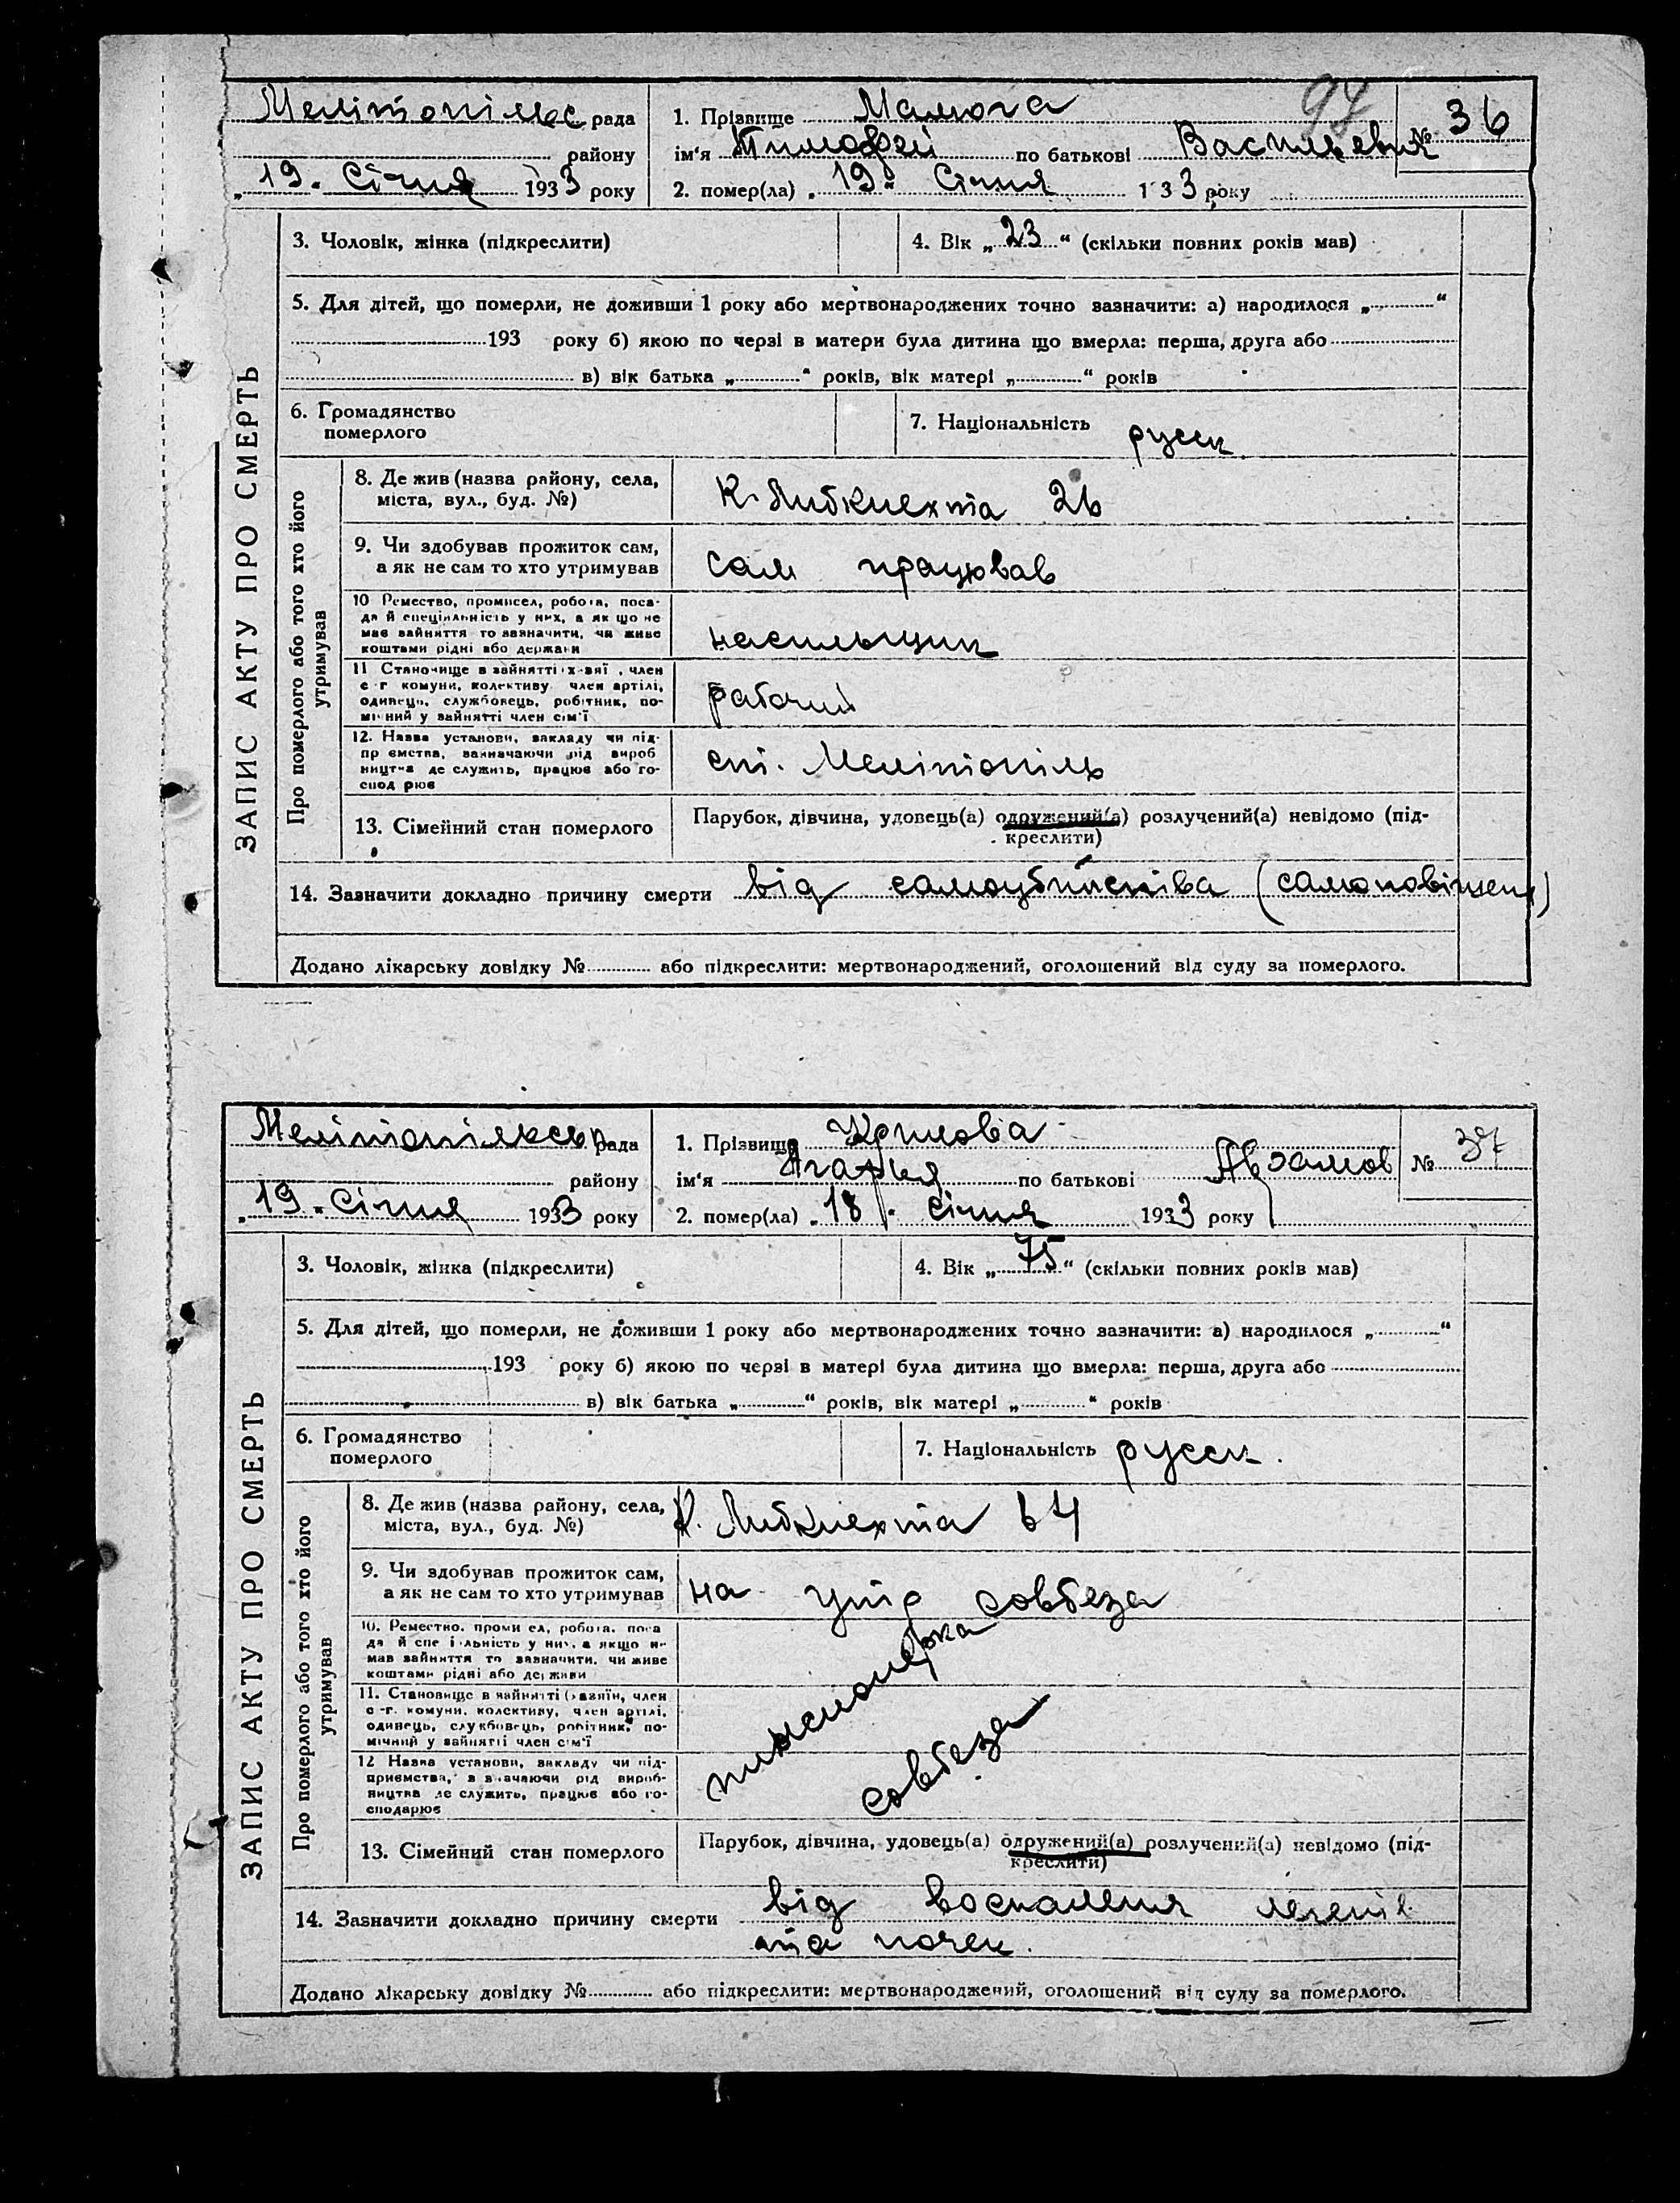 94
Мелітопільс рада
району
„19" Січня 1933 року
1. Прізвище Малюга
ім'я Тимофей по батькові Васильевич
№ 36
2. помер(ла) „19" Січня 1933 року
ЗАПИС АКТУ ПРО СМЕРТЬ
3. Чоловік, жінка (підкреслити)
4. Вік „23" (скільки повних років мав)
5. Для дітей, що померли, не доживши 1 року або мертвонароджених точно зазначити: а) народилося „ "
193 року б) якою по черзі в матери була дитина що вмерла: перша, друга або
в) вік батька „ " років, вік матері „ " років
6. Громадянство
померлого
7. Національність русск.
Про померлого або того хто його
утримував
8. Де жив (назва району, села,
міста, вул., буд. №)
К. Либкнехта 26
9. Чи здобував прожиток сам,
а як не сам то хто утримував
сам працював
10 Ремество, промисел, робота, поса-
да й спеціяльність у них, а як що не
має зайняття то зазначити, чи живе
коштами рідні або держави
насильщик
11 Становище в зайнятті х-зяї , член
с-г комуни, колективу член артілі,
одинець, службовець, робітник, по-
мічний у зайнятті член сім'ї
рабочий
12. Назва установи, закладу чи під-
пр ємства, зазначаючи рід вироб
ництва де служить, працює або го-
спод рює
ст. Мелітопіль
13. Сімейний стан померлого
Парубок, дівчина, удовець(а) одружений(а) розлучений(а) невідомо (під-
креслити)
14. Зазначити докладно причину смерти від самоубийства (самоповішення)
Додано лікарську довідку № або підкреслити: мертвонароджений, оголошений від суду за померлого.
Мелітопільськ рада
району
„19" Січня 1933 року
1. Прізвище Крилова
ім'я Агафья по батькові
№ 37
2. помер(ла) „18" Січня 1933 року
ЗАПИС АКТУ ПРО СМЕРТЬ
3. Чоловік, жінка (підкреслити)
4. Вік „75" (скільки повних років мав)
5. Для дітей, що померли, не доживши 1 року або мертвонароджених точно зазначити: а) народилося „ "
193 року б) якою по черзі в матері була дитина що вмерла: перша, друга або
в) вік батька „ " років, вік матері „ " років
6. Громадянство
померлого
7. Національність русск.
Про померлого або того хто його
утримував
8. Де жив (назва району, села,
міста, вул., буд. №)
К. Либкнехта 64
9. Чи здобував прожиток сам,
а як не сам то хто утримував
на утр совбеза
10. Ремество, проми ел, робота, поса
да й спе і льність у них, а якщо н-
мав зайняття то зазначити, чи живе
коштами рідні або держави
11. Становище в зайнятті (хазяїн, член
с-г. комуни, колективу, член артілі,
одинець, службовець, робітник, по-
мічний у зайнятті член сім'ї
12 Назва установи, закладу чи під-
приємства, з зн ачаючи рід вироб-
ництва де служить, працює або го-
сподарює
пинсионерка
совбеза
13. Сімейний стан померлого
Парубок, дівчина, удовець(а) одружений(а) розлучений(а) невідомо (під-
креслити)
14. Зазначити докладно причину смерти від воспаления легенів
та почек.
Додано лікарську довідку № або підкреслити: мертвонароджений, оголошений від суду за померлого.